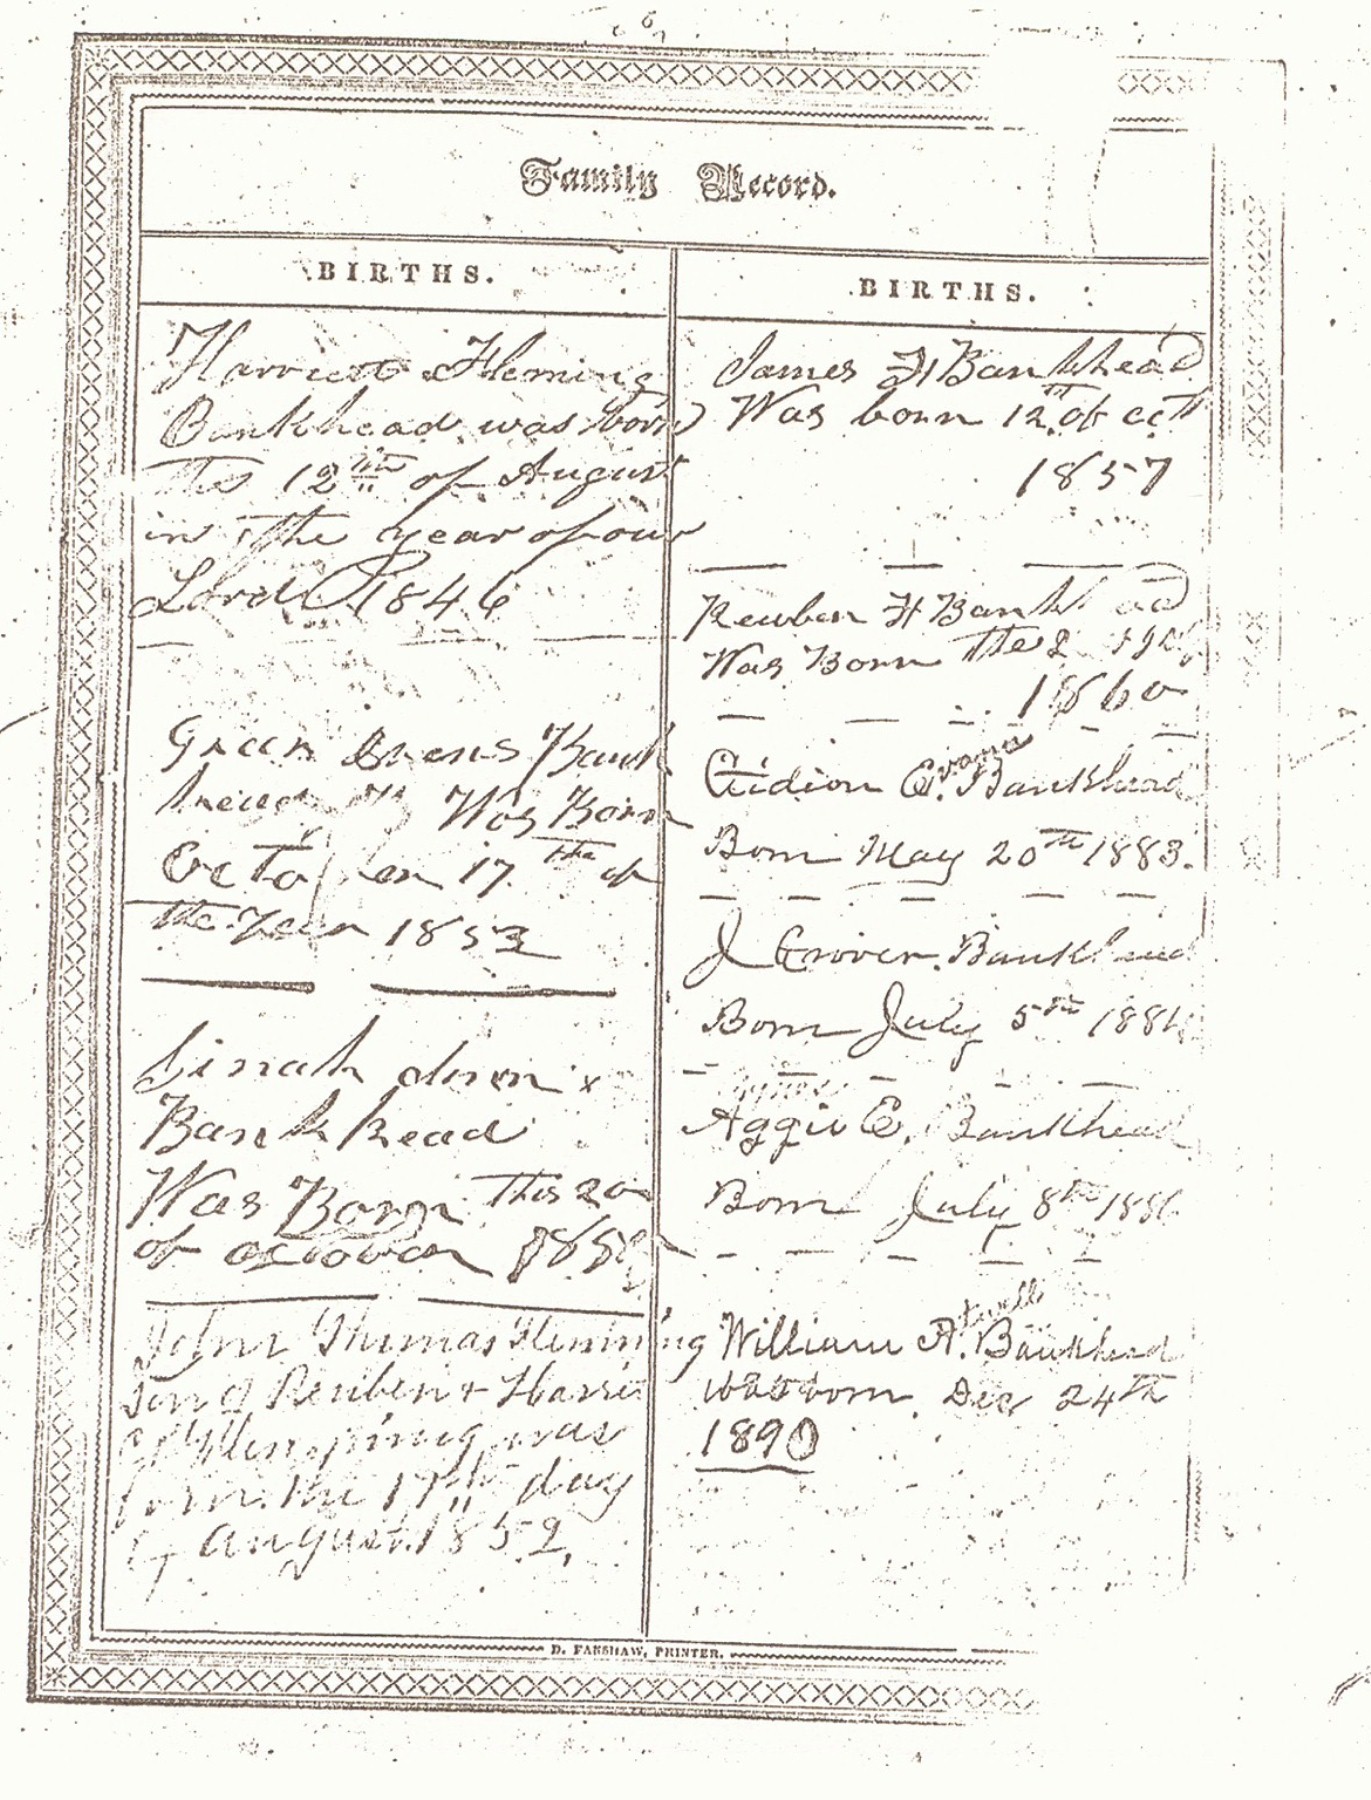 Family Record.
BIRTHS.
Harriett Fleming
Bankhead was born
the 12th of August
in the year of our
Lord 1846
Green Bank
head Was Born
October 17 the of
the Year 1853
Bankhead
Was Born this 20
of october
John Thomas Flemming
Son of Reuben & Harriet
Flemming was
born the 17th day
of august 1852,
BIRTHS.
James H Bankhead
Was born 12th of oct
1857
Reuben H Bankhead
Was Born the 2
1860
Gidion E. Bankhead
Born May 20th 1883.
J Grover. Bankhead
Born July 5th
Aggie E. Bankhead
Born July 8th 1886
William A. Bankhead
was born Dec 24th
1890
D. FANSHAW, PRINTER.